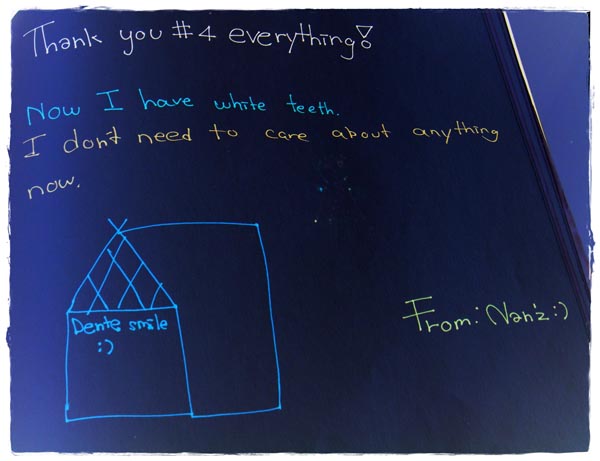 Thank you #4 everything!
Now I have white teeth.
I don't need to care about anything
now.
Dente smile
:)
From: Nan'z :)